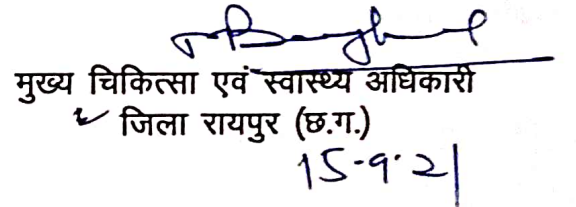 मुख्य चिकित्सा एवं स्वास्थ्य अधिकारी
जिला रायपुर (छ.ग.)
15-9-21